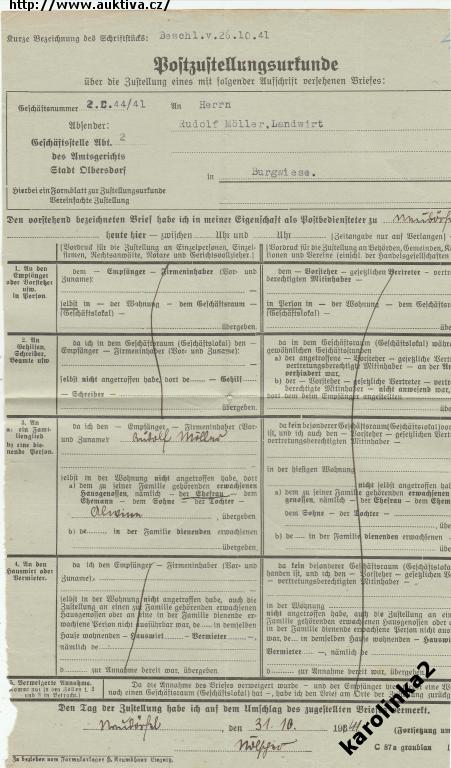 http://www.auktiva.cz/
Kurze Bezeichnung des Schriftstücks: Beschl.v.26.10.41
Postzustellungsurkunde
über die Zustellung eines mit folgender Aufschrift versehenen Briefes:
Geschäftsnummer 2.C.44/41 An Herrn
Absender: Rudolf Möller, Landwirt
Geschäftsstelle Abt. 2
des Amtsgerichts
Stadt Olbersdorf in Burgwiese.
Hierbei ein Formblatt zur Zustellungsurkunde
Vereinfachte Zustellung
Den vorstehend bezeichneten Brief habe ich in meiner Eigenschaft als Postbediensteter zu
heute hier — zwischen Uhr und Uhr (Zeitangabe nur auf Verlangen)
(Vordruck für die Zustellung an Einzelpersonen, Einzel-
firmen, Rechtsanwälte, Notare und Gerichtsvollzieher.)
(Vordruck für die Zustellung an Behörden, Gemeinden, K
und Vereine (einschl. der Handelsgesellschaften
1. An den
Empfänger
oder Vorsteher
usw.
in Person.
dem — Empfänger — Firmeninhaber (Vor- und
Zuname):
selbst in — der Wohnung — dem Geschäftsraum —
(Geschäftslokal) —
übergeben.
dem — Vorsteher — gesetzlichen Vertreter — vertre
berechtigten Mitinhaber —
in Person in — der Wohnung — dem Geschäftsra
(Geschäftslokal) —
übergeben
2. An
Gehilfen,
Schreiber,
Beamte usw.
da ich in dem Geschäftsraum (Geschäftslokal) den —
Empfänger — Firmeninhaber (Vor- und Zuname):
selbst nicht angetroffen habe, dort de — Gehilf
— Schreiber —
übergeben.
da in dem Geschäftsraum (Geschäftslokal) währe
gewöhnlichen Geschäftsstunden
a) der angetroffene — Vorsteher — gesetzliche Ve
vertretungsberechtigte Mitinhaber — an der An
verhindert war,
b) der — Vorsteher — gesetzliche Vertreter — vertr
berechtigte Mitinhaber — nicht anwesend war,
dort dem beim Empfänger angestellten
übergeb
3. An
a) ein Fami-
lienglied
b) eine die-
nende Person.
da ich den — Empfänger — Firmeninhaber (Vor-
und Zuname): Rudolf Möller
selbst in der Wohnung nicht angetroffen habe, dort
a) dem zu seiner Familie gehörenden erwachsenen
Hausgenossen, nämlich — der Ehefrau — dem
Ehemann — dem Sohne — der Tochter —
Alwine, übergeben
b) de in der Familie dienenden erwachsenen
übergeben.
da kein besonderer Geschäftsraum (Geschäftslokal)
ist, und ich den — Vorsteher — gesetzlichen Vertreter
vertretungsberechtigten Mitinhaber —
in der hiesigen Wohnung
nicht selbst angetroffen ha
a) dem zu seiner Familie gehörenden erwachsene
nämlich — der Ehefrau — dem Ehem
dem Sohne — der Tochter —
b) de in der Familie dienenden erwachsenen
übergebe
4. An den
Hauswirt oder
Vermieter.
da ich den Empfänger — Firmeninhaber (Vor- und
Zuname):
in der Wohnung nicht angetroffen habe, auch die
Zustellung an einen zu der Familie gehörenden erwachsenen
Hausgenossen oder an eine in der Familie dienende er-
wachsene Person nicht ausführbar war, de in dem-
selben Hause wohnenden — Hauswirt — Vermieter —
, nämlich de
d zur Annahme bereit war, übergeben.
da kein besonderer Geschäftsraum (Geschäftslokal
handen ist, und ich den — Vorsteher — gesetzlichen V
— vertretungsberechtigten Mitinhaber —
in der Wohnung
nicht angetroffen habe, auch die Zustellung an eine
Familie gehörenden erwachsenen Hausgenossen oder
der Familie dienende erwachsene Person nicht aus
war, de in demselben Hause wohnenden — Hauswirt
Vermieter —, nämlich de
d zur Annahme bereit war, übergeben.
5. Verweigerte Annahme.
(Kommt nur in den Fällen 1, 2
und 3 in Betracht.)
Da die Annahme des Briefes verweigert wurde — und der Empfänger
noch einen Geschäftsraum (Geschäftslokal) hat —, habe ich den Brief am Orte der Zustellung zurück
Den Tag der Zustellung habe ich auf dem Umschlag des zugestellten Briefes vermerkt.
, den 31.10. 1941
(Fortsetzung um
C 87a graublau
Zu beziehen vom Formularlager H. Krumbhaar Liegnitz.
karolinka2